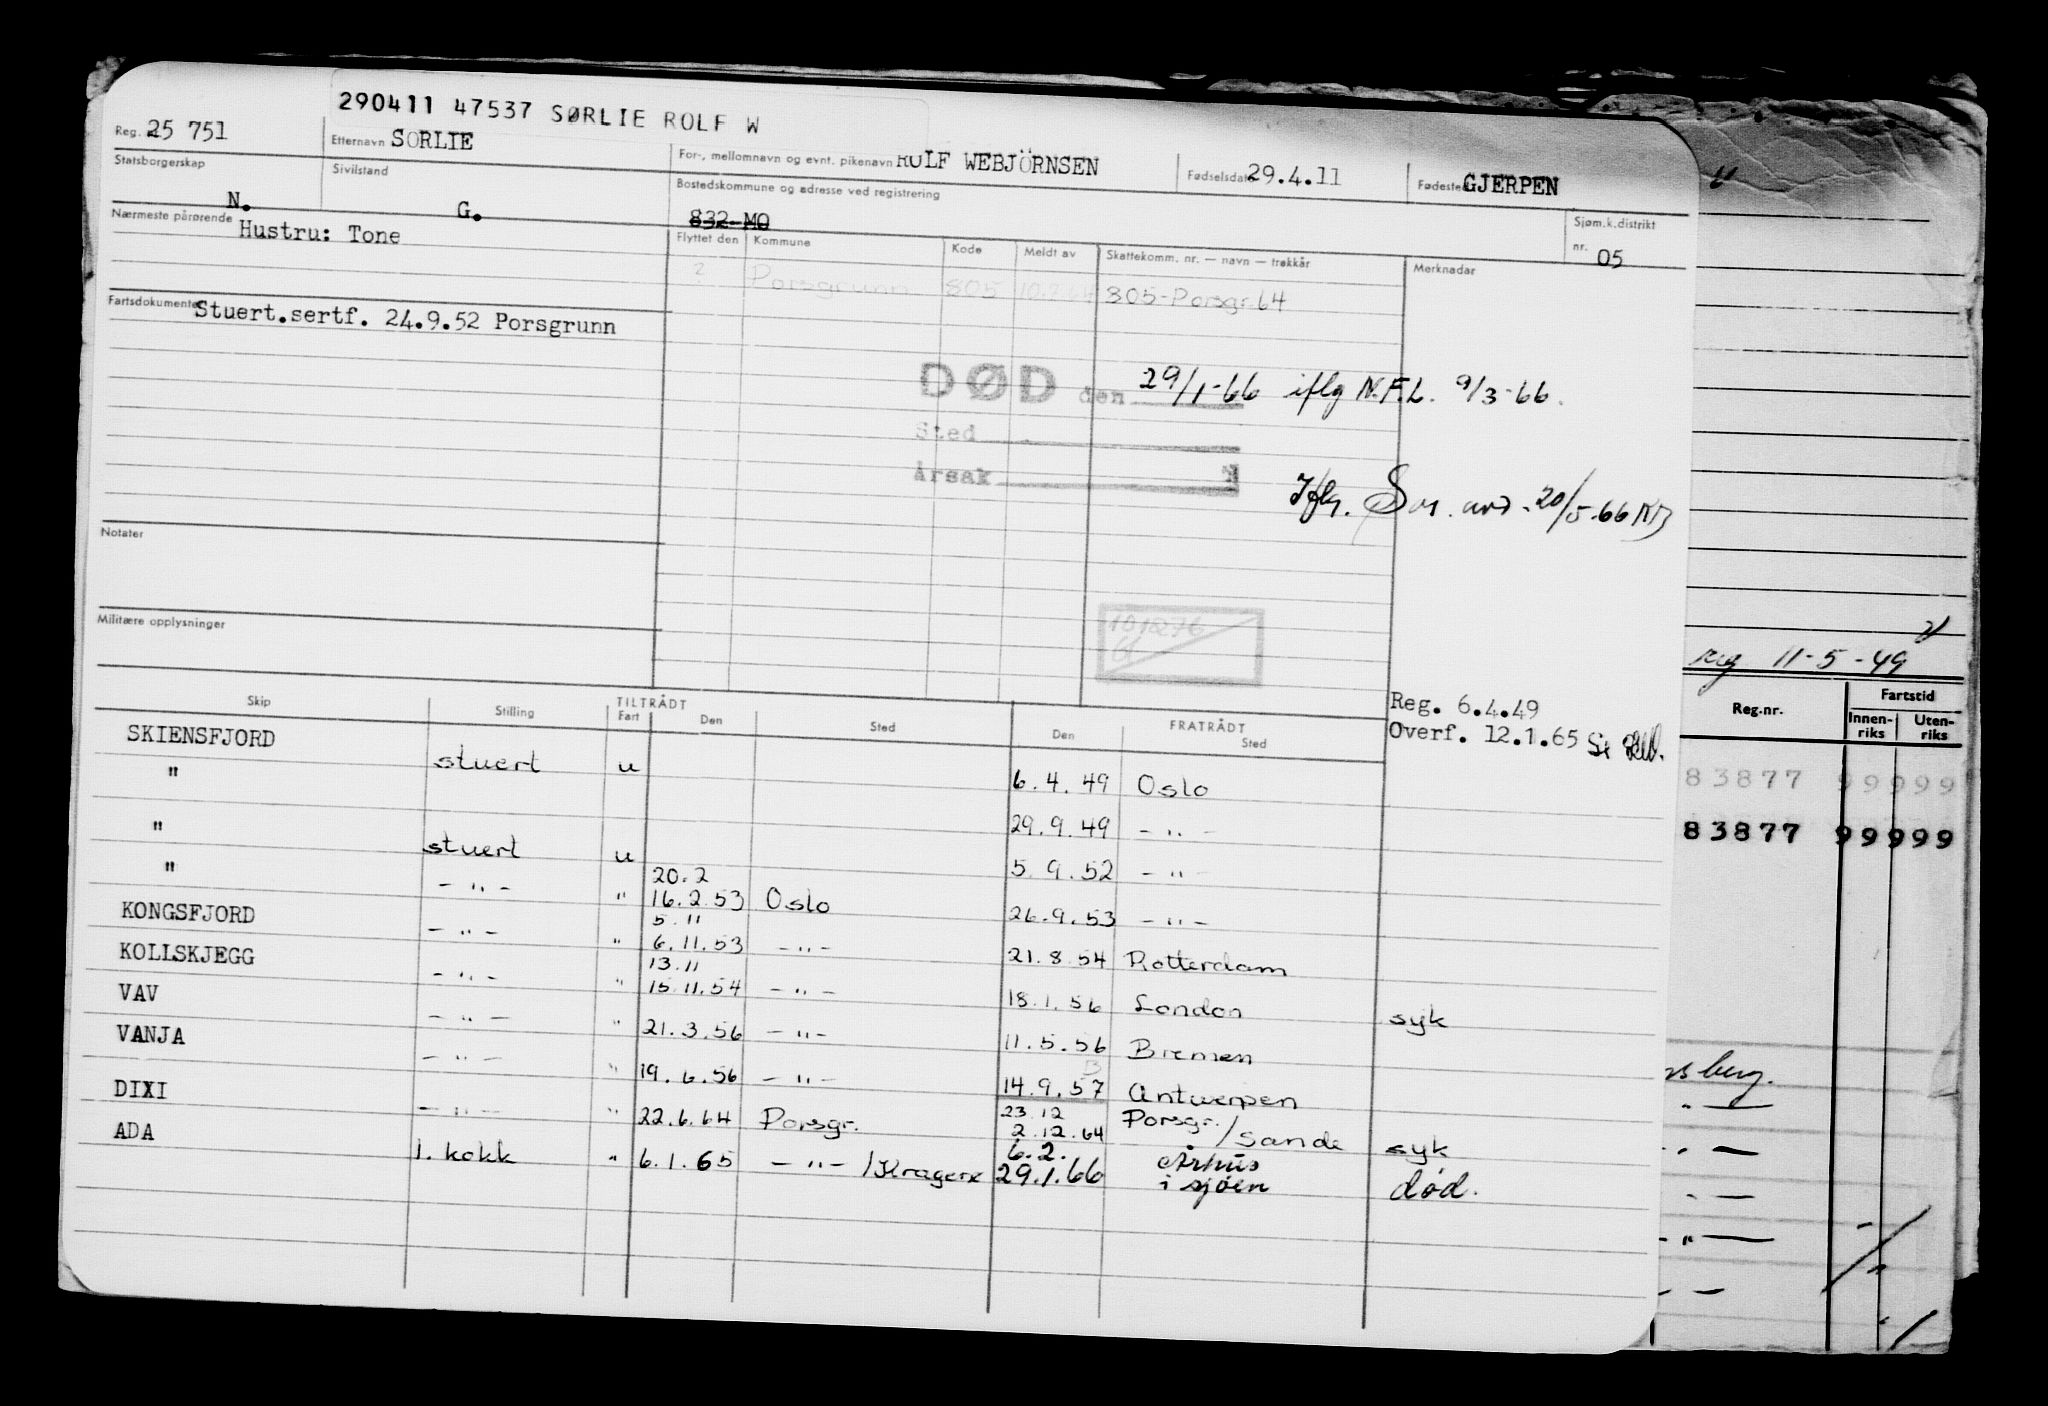 290411 47537 SØRLIE ROLF W
Reg. 25 751
Etternavn SORLIE
For-, mellomnavn og evnt. pikenavn ROLF WEBJÖRNSEN
Fødselsdato 29.4.11
Fødested GJERPEN
Statsborgerskap N.
Sivilstand G.
Bostedskommune og adresse ved registrering
832-MO
Sjøm.k.distrikt nr. 05
Nærmeste pårørende
Hustru: Tone
Flyttet den Kommune Kode Meldt av Skattekomm. nr. — navn — trekkår Merknader
? Porsgrunn 805 10.7.64 805-Porsgr. 64
Fartsdokumenter
Stuert.sertf. 24.9.52 Porsgrunn
DØD den 29/1-66 iflg N.F.L. 9/3-66.
Sted
Årsak
Iflg. 20/5-66
Notater
Militære opplysninger
101276
Reg. 6.4.49
Overf. 12.1.65
Skip Stilling TILTRÅDT Fart Den Sted FRATRÅDT Den Sted
SKIENSFJORD stuert u 6.4.49 Oslo
" 29.9.49 - " -
" stuert u 5.9.52 - " -
" - " - " 20.2 16.2.53 Oslo 26.9.53 - " -
KONGSFJORD - " - " 5.11 6.11.53 - " - 21.8.54 Rotterdam
KOLLSKJEGG - " - " 13.11 15.11.54 - " - 18.1.56 London syk
VAV - " - " 21.3.56 - " - 11.5.56 Bremen
VANJA - " - " 19.6.56 - " - 14.9.57 Antwerpen
DIXI - " - " 22.6.64 Porsgr. 23.12 2.12.64 Porsgr./Sande syk
ADA 1. kokk " 6.1.65 - " - /Kragerø 6.2. 29.1.66 Århus i sjøen død.
reg 11-5-49
Reg.nr. Fartstid
Innen-riks Uten-riks
83877 99999
83877 99999